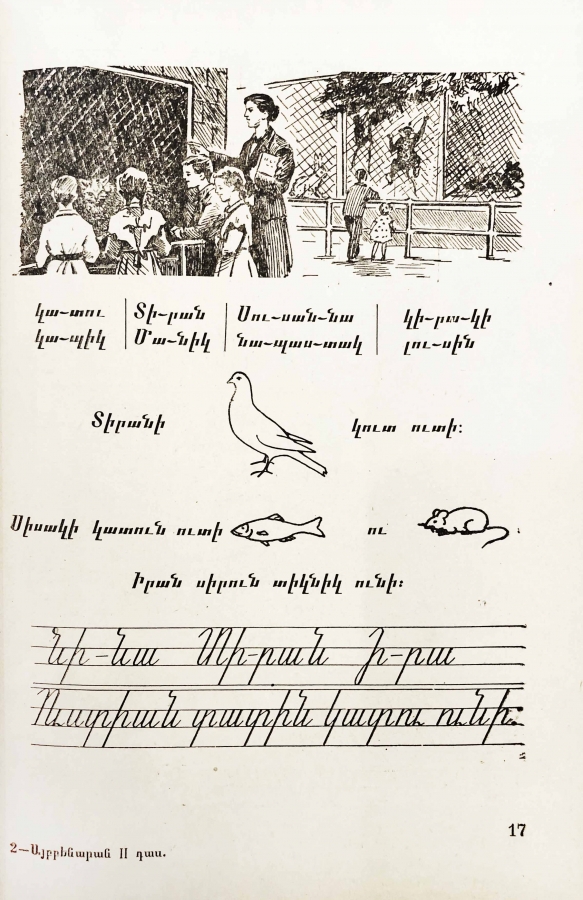 կա-տու | Տի-րան | Սու-սան-նա | կի-րա-կի
կա-պիկ | Մա-նիկ | նա-պաս-տակ | լու-սին
Տիրանի կուտ ուտի։
Սիսակի կատուն ուտի ու
Իրան սիրուն տիկնիկ ունի։
Նի-նա Մի-րան Ի-րա
Ուստիան տատին կատու ունի։
17
2—Այբբենարան II դաս.